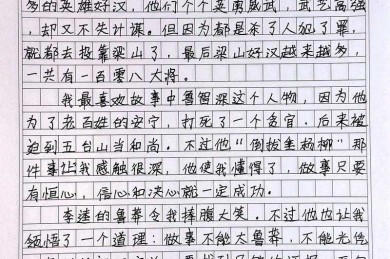 多的英雄好汉，他们个个英勇威武，武艺高强
，却又不失计谋。但因为都是杀了人犯了罪，
就都去投靠梁山了，最后梁山好汉越来越多，
一共有一百零八大将。
我最喜欢故事中鲁智深这个人物，因为他
为了老百姓的安宁，打死了一个贪官，后来被
迫到五台山当和尚。不过他“倒拔垂杨柳”那
件事让我感触很深，他使我懂得了，做事只要
有恒心，信心和决心就一定成功。
李逵的鲁莽令我捧腹大笑。不过他也让我
领悟了一个道理：做事不能太鲁莽，不能光凭